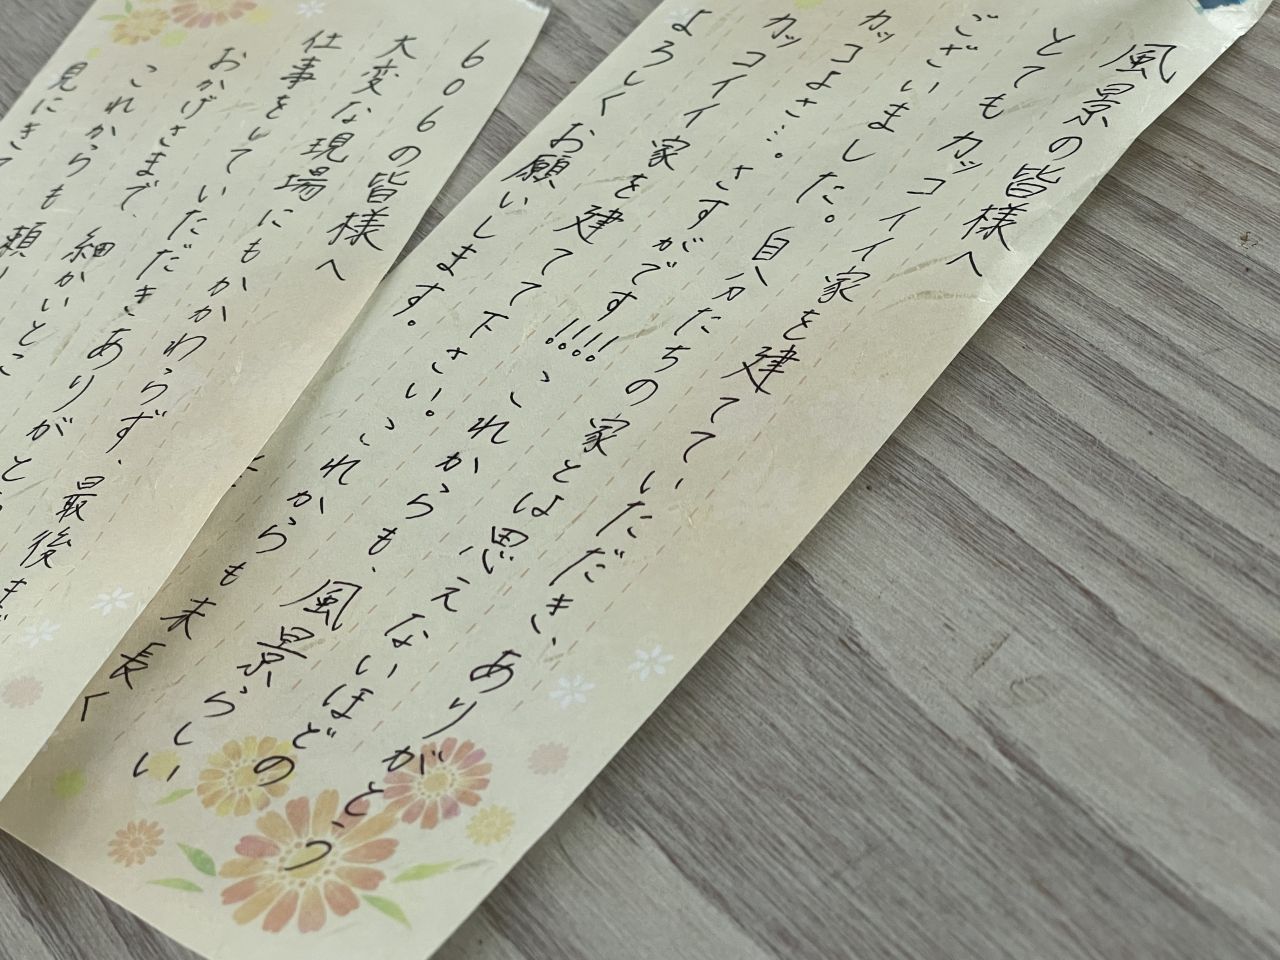 風景の皆様へ
とてもカッコイイ家を建てていただき、ありがとう
ございました。自分たちの家とは思えないほどの
カッコよさ…。さすがです!!!! これからも、風景らしい
カッコイイ家を建てて下さい。これからも末長く
よろしくお願いします。
606の皆様へ
大変な現場にもかかわらず、最後まで
仕事をしていただきありがと
おかげさまで、細かいとこ
これからも頼
見にき